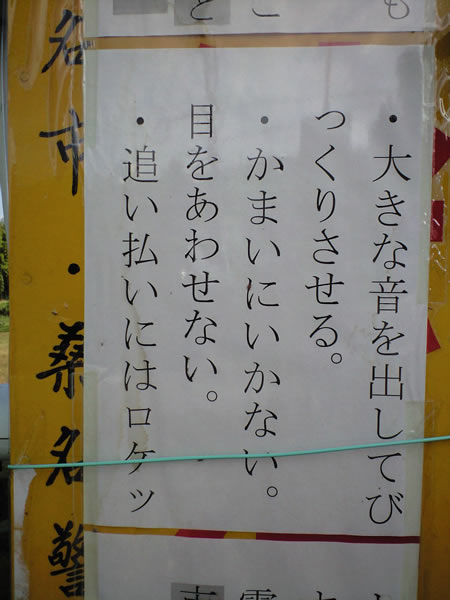 ・大きな音を出してび
っくりさせる。
・かまいにいかない。
目をあわせない。
・追い払いにはロケッ
名市・桑名警